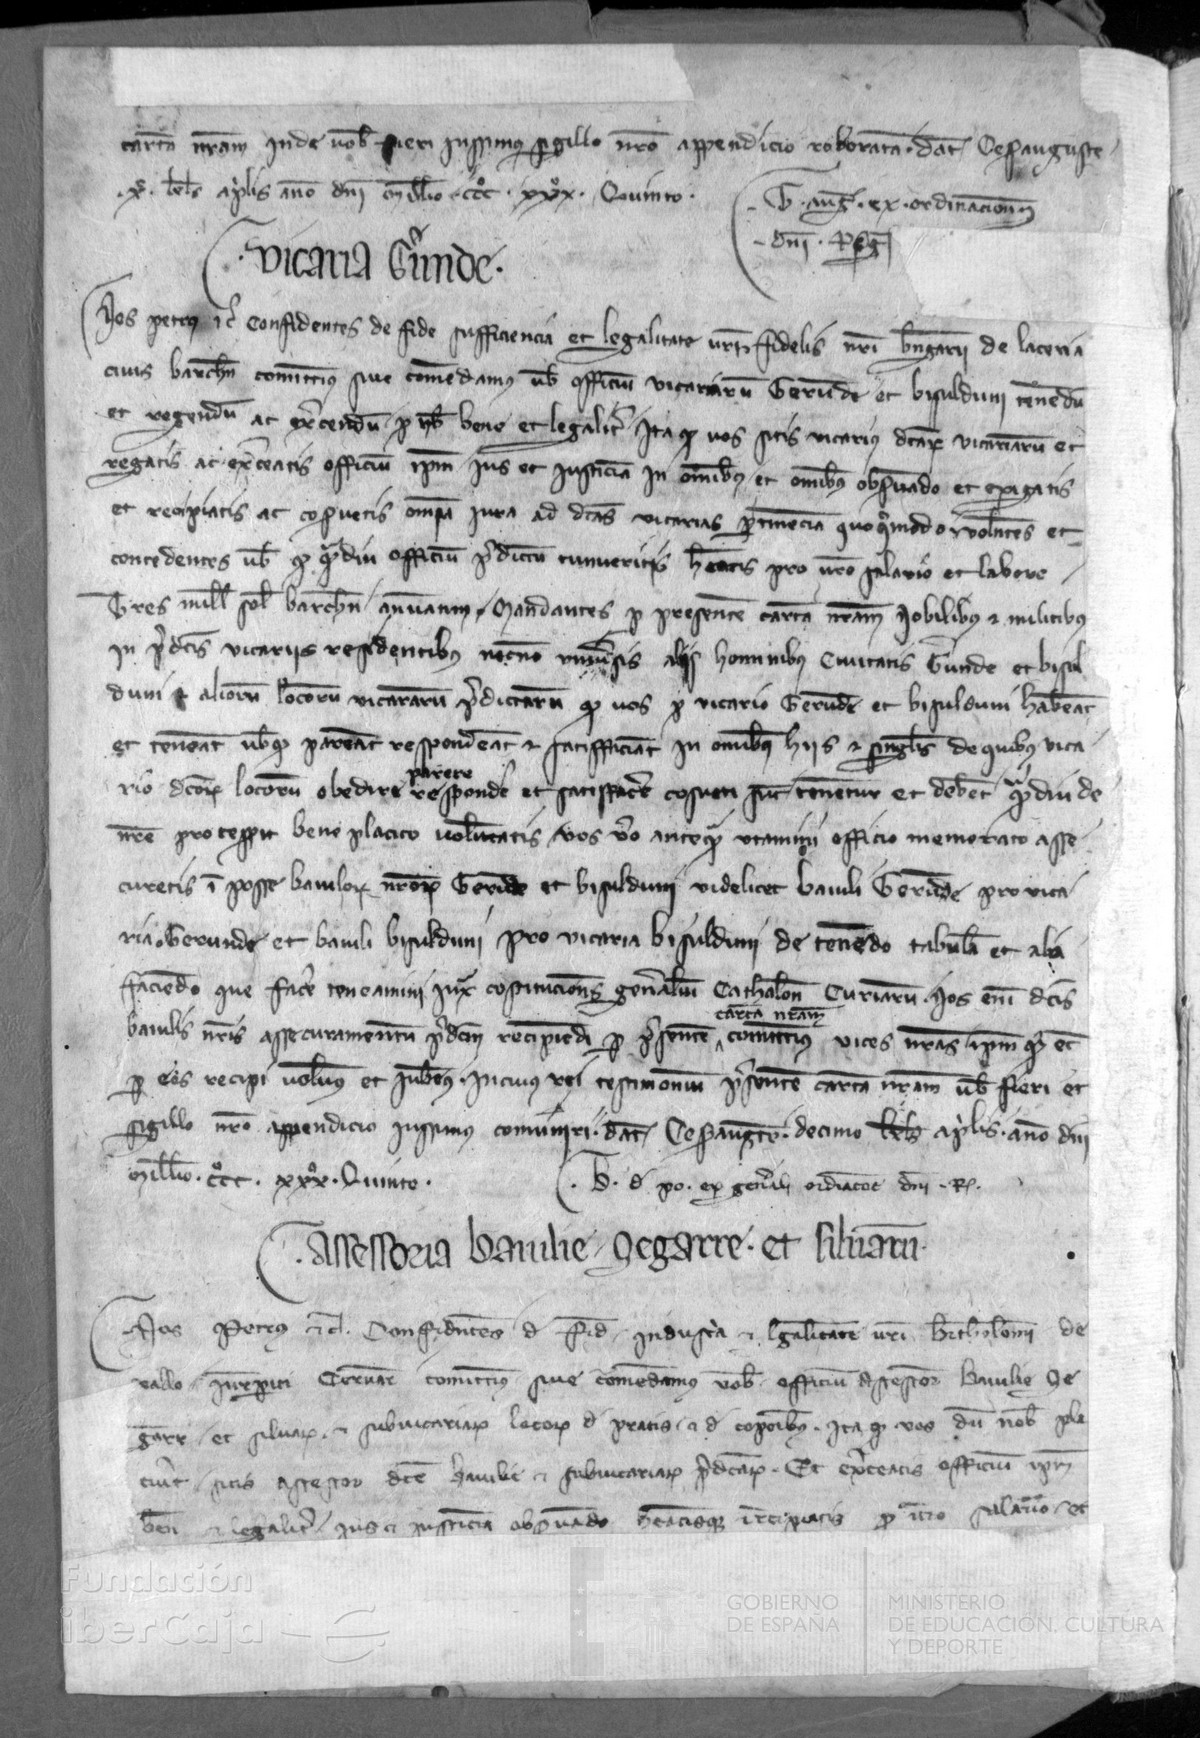 carta nram inde vob fieri iussimus sigillo nro appendicio roborata. dat Cesarauguste
.x. kls aplis ano dni millio .ccc. xxx. Quinto.
G. aug. ex. ordinacion
dni. Reg
Vicaria Gerunde.
Nos petrus etc confidentes de fide sufficiencia et legalitate vri fidelis nri bngarii de laceria
civis barchn comittimus sive comendamus vob officiu vicariaru Gerunde et bisulduni tenendu
et regendu ac exercendu p vos bene et legaliter Ita q vos sitis vicarius dcar vicariaru et
regatis ac exerceatis officiu ipm ius et iusticia in omibus et omibus observado et exigatis
et recipiatis ac cosuetis omia iura ad dcas vicarias ptinecia quoqmodo volentes et
concedentes vob q qmdiu officiu pdictu tenueritis heatis pro vro salario et labore
Tres mille sol barchn annuatim Mandantes p presente carta nram Nobilibus et militibus
in pdcis vicariis residentibus necno universis aliis hominibus Civitatis Gerunde et bisul
duni et alioru locoru vicararu pdictaru q vos p vicario Gerunde et bisulduni habeat
et teneat vobq pareat respondeat et satisfficiat in omibus hiis et singlis de quibus vica
rio dcor locoru obedire parere responde et satisffacere cosueti sut tenetur et debet qmdiu de
nre processit bene placito volutatis Vos vo anteq utamini officio memorato asse
curetis i posse baiulor nror Gerude et bisulduni videlicet baiuli Gerunde pro vica
ria Gerunde et baiuli bisulduni pro vicaria bisulduni de tenedo tabula et alia
faciedo que facere teneamini iux costitucions generaliu Cathalon Curiaru Nos eni dcis
baiulis nris assecuramentu pdcm recipiedi p psente carta nram comittimus vices nras ipm q et
p eos recipi volumus et iubemus. In cuius rei testimoniu psente carta nram vob fieri et
sigillo nro appendicio iussimus comuniri. dat Cesaraugte. decimo kls aplis. ano dni
Millio. ccc. xxx. Quinto.
B. d po. ex generali ordiacoe dni .R.
Assessoria baiulie Segarre. et silvaru.
Nos Petrus etc. Confidentes d fid industria et legalitate vri Bartholomi de
vallo iurisperiti Cervarie comittimus sive comedamus vob officiu Assessor baiulie Se
garr et silvar et subvicariar locor d pratis et d copoibus. Ita q vos du nob pla
cuerit sitis assessor dce baiulie et subvicariar pdcar. Et exerceatis officiu ipm
ben et legaliter ius et iusticia observado heatisque et recipiatis p vro salario et
Fundación
iberCaja
GOBIERNO
DE ESPAÑA
MINISTERIO
DE EDUCACIÓN, CULTURA
Y DEPORTE